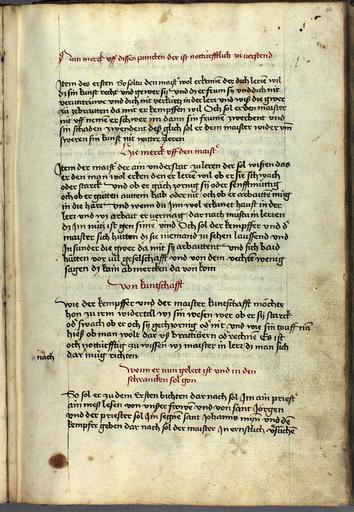 Nun merck vff dissen puncten der ist nottürfftlich zu verstend
Item des ersten So soltu den maist wol erkennen der dich leren wil
dz sin kunst recht vnd gewer sy vnd dz er frum sy vnd dich nit
veruntruwe vnd dich nit verkürtz in der lere vnd wiß die gwer
zu bereitten da mit er kempffen wil Och sol er den maister
nit vff nemen er schwer im dann sin frume zwerbent vnd
sin schaden zwendent deß glich sol er dem maister wider vm
sweren sin kunst nit witter zleren
Hie merck vff den maist
Item der maist der ain vnderstat zu leren der sol wissen das
er den man wol erken den er leren wil ob er sie schwach
oder starck vnd ob er gäch zornig sy oder senfftmüttig
och ob er gütten auttem hab oder nit och ob er arbaitten müg
in die harr vnd wenn du Inn wol erkunet haust in der
ler vnd was arbait er vermag dar nach mustu in lerren
dz Im nütz ist gen sinem vind Och sol der kempffer vnd d
maister sich hütten dz sie niemand zu sehen laussend vnd
In sunder die gwer da mit sy arbaittent vnd sich baid
hütten vor vil gesellschafft vnd von dem vechte wenig
sagen dz kain abmercken da von kom
Von kuntschafft
Wie der kempffer vnd der maister kuntschafft möchte
hon zu irem widertail wz sin wesen wer ob er sy starck
od swach ob er och sy gechzornig od nit vnd wie sin touff nam
hieß ob man wölt dar vß brattigieren od rechne Es ist
och notturfftig zu wissen wz maister in lerr dz man sich
nach
dar müg richten
Wenn er nun gelert ist vnd in den
schrancken sol gon
So sol er zu dem Ersten bichten dar nach sol Im ain priest
ain mess lesen von vnßer frowen vnd von sant Jörgen
vnd der priester sol Im segnen sant Johanns min vnd dem
kempffer geben dar nach sol der maister In ernstlich v̈suchen